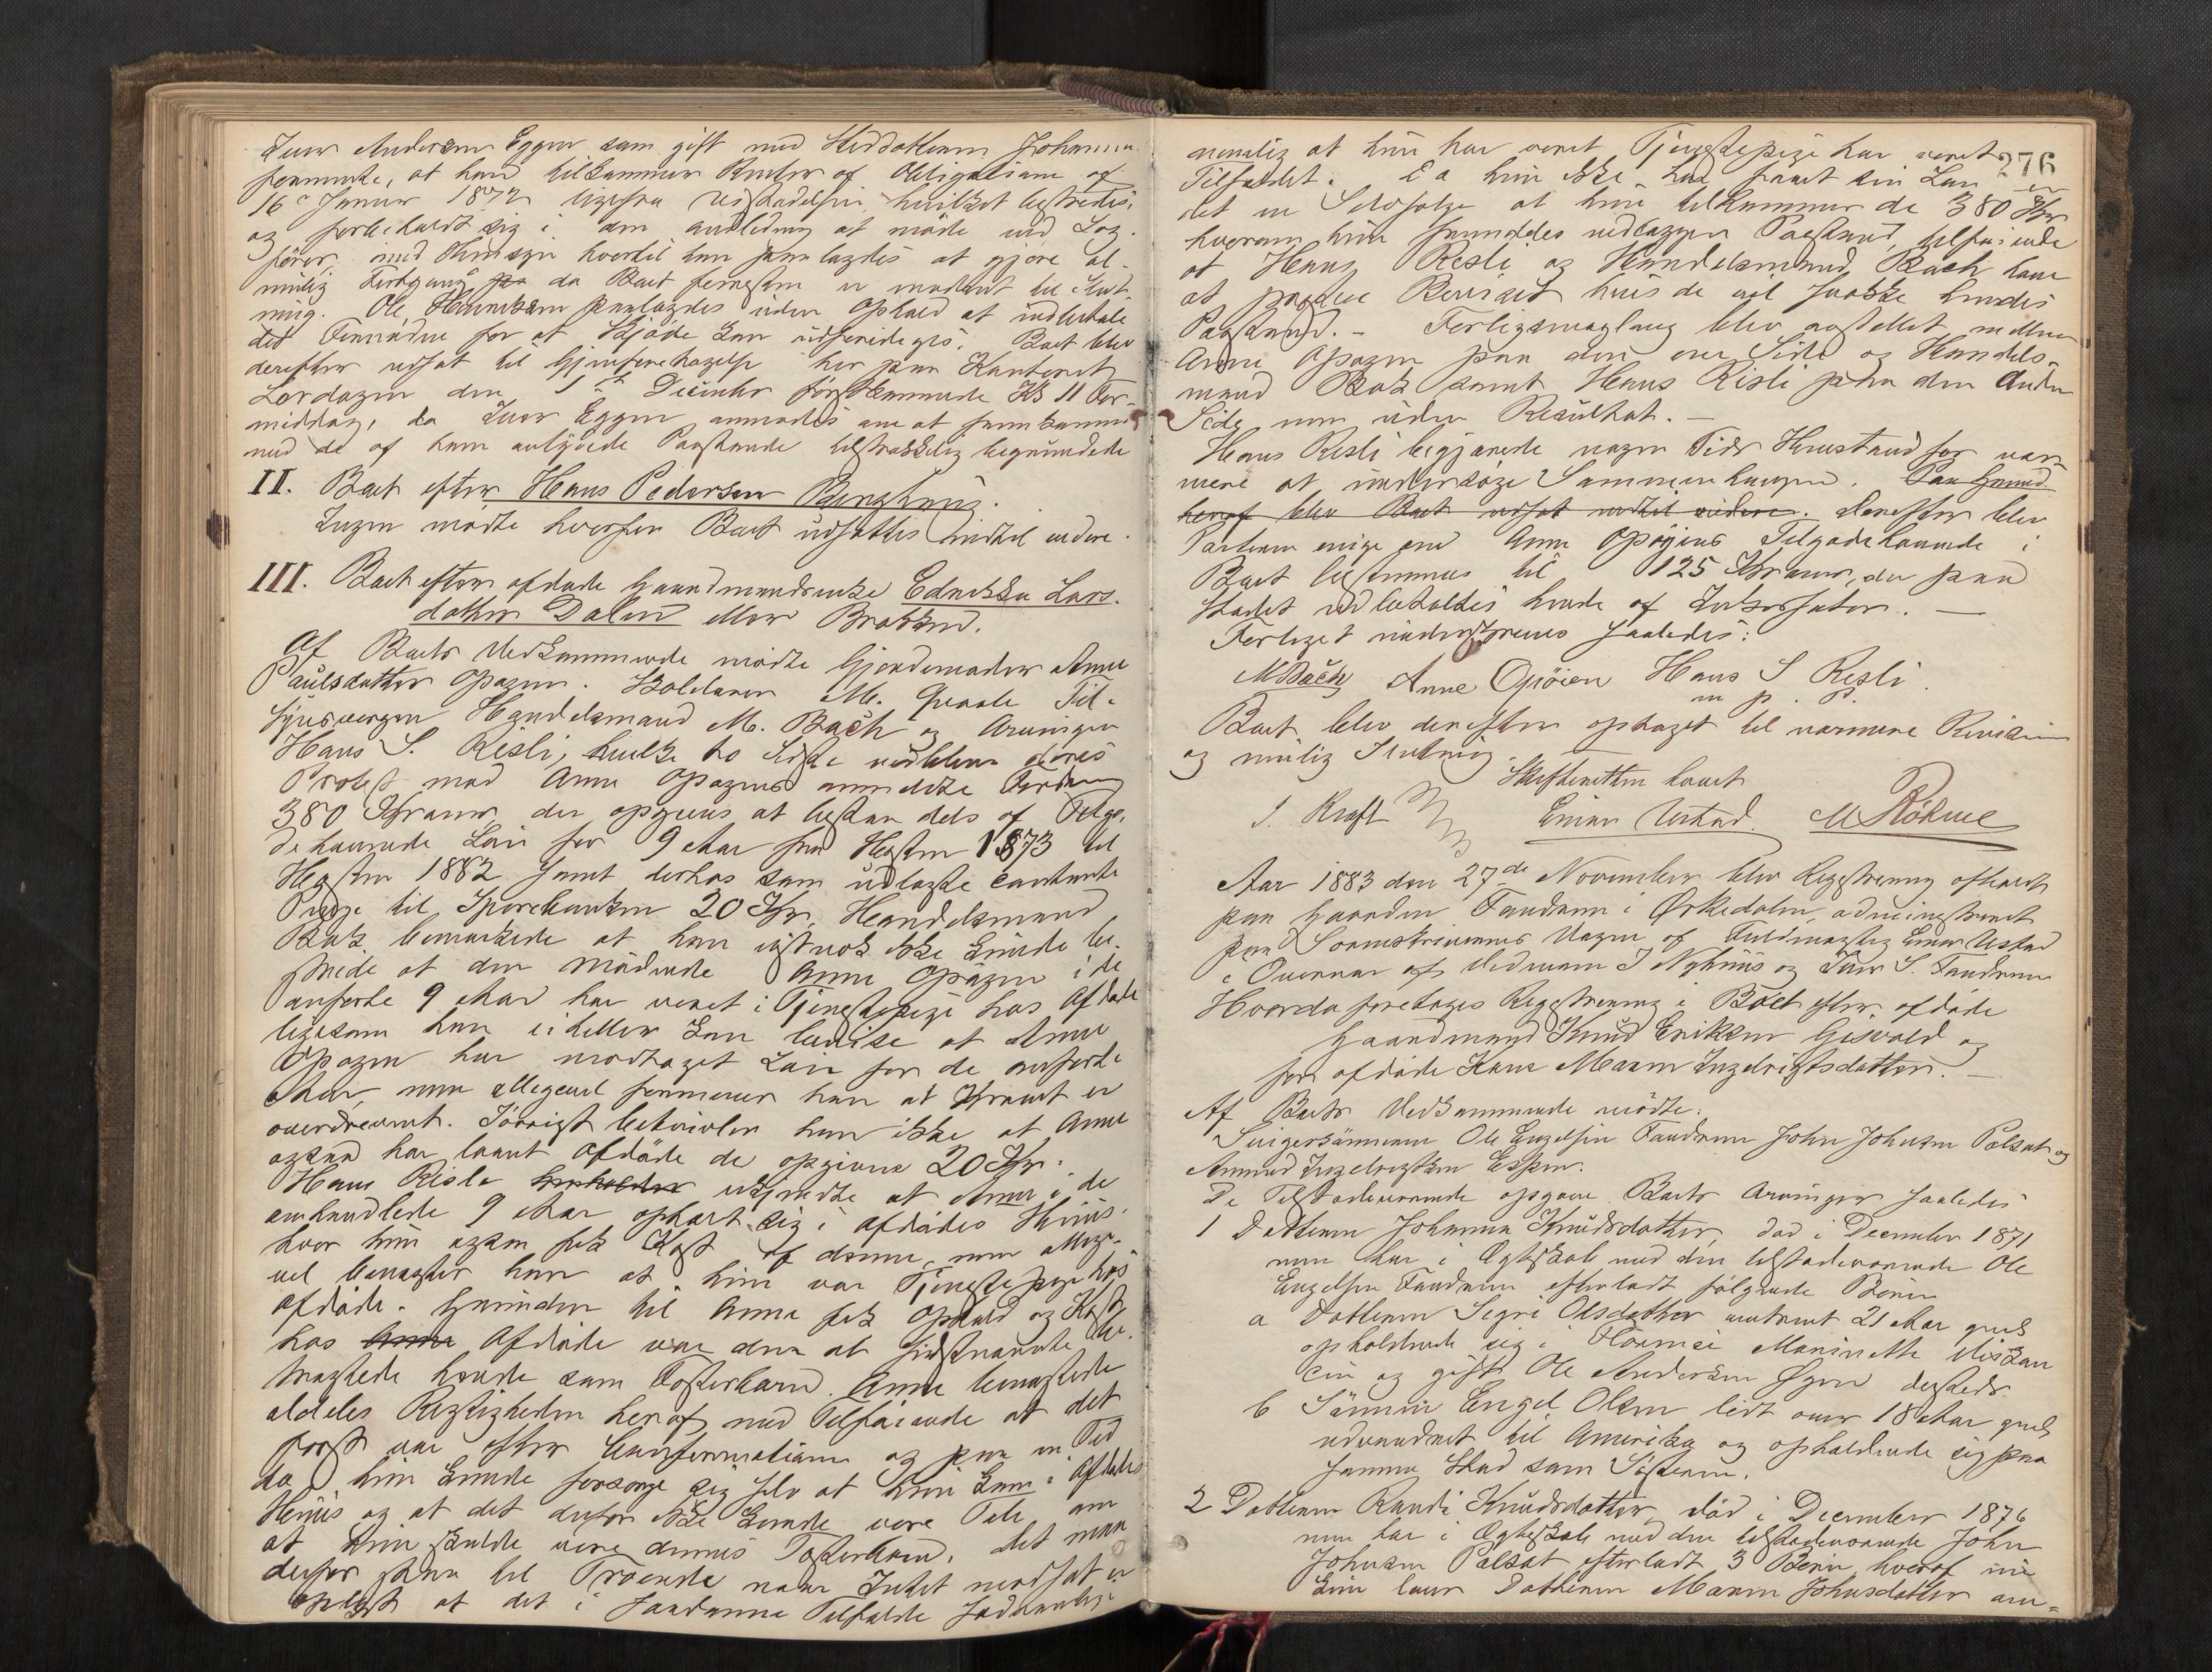 Iver Andersen Eggen som gift med Steddatteren Johanna
formente, at han tilkommer Renter af Obligationen af
16de Januar 1872 ligefra Udstedelsen hvilket bestredes,
og forbeholdt sig i den anledning at møde ved Sag-
fører, med Hensyn hvortil han paalagdes at gjøre al
mulig Fortgang da Boet forresten er modent til Slut-
ning. Ole Henriksen paalagdes uden Ophold at indbetale
det Fornødne for at Skjøde kan udfærdiges. Boet blev
derefter udsat til Gjenforetagelse her paa Kontoret
Lørdagen den 1ste December førstkommende Kl 11 For-
middag, da Iver Eggen anmodes om at fremkomme
med de af ham antydede Paastande tilstrækkelig begrundede
II. Boet efter Hans Pedersen Berghuus.
Ingen mødte hvorfor Boet udsattes indtil videre.
III. Boet efter afdøde Gaardmandsenke Lars-
datter Dalen eller Brakken.
Af Boets Vedkommende mødte Gjordemoder Anne
Paulsdatter Opøgen. Skolelærer M. Til-
synsværgen Handelsmand M. Bach og Arvingen
Hans S. Risli, hvilke to sidste nedlagde deres
Protest mod Anne Opøgens anmeldte Fordring
380 Kroner, der opgives at bestaa dels af Tilgo-
dehavende Løn for 9 Aar fra Høsten 1873 til
Høsten 1882 samt derhos som udlagte contante
Penge til Sparebanken 20 Kr. Handelsmand
Bak bemærkede at han vistnok ikke kunde be-
stride at den mødende Anne Opøgen i de
anførte 9 Aar har været i Tjenestepige hos Afdøde
ligesom han ei heller kan bevise at Anne
Opøgen har modtaget Løn for de anførte
Aar, men alligevel formener han at Kravet er
overdrevent. Iøvrigt betvivler han ikke at Anne
ogsaa har laant Afdøde de opgivne 20 Kr.
Hans Risli udsagde at Anne i de
omhandlede 9 Aar opholdt sig i afdødes Huus,
hvor hun ogsaa fik Kost af denne, men allige-
vel benægter han at hun var Tjenestepige hos
afdøde. Grunden til Anne fik Ophold og Kost
hos Anne Afdøde var den at sidstnævnte be-
tragtede hende som Fosterbarn. Anne benægtede
aldeles Rigtigheden heraf med Tilføiende at det
først var efter Confirmationen og paa en Tid
da hun kunde forsørge sig selv at hun kom i Afdødes
Huus og at det derfor ikke kunde være Tale om
at hun skulde være dennes Fosterbarn. Det maa
derfor staa til Troende naar Intet modsat er
oplyst at det i saadanne Tilfælde
276
nemlig at hun har været Tjenestepige har været
Tilfældet. Da hun ikke har faaet sin Løn er
det en Selvfølge at hun tilkommer de 380 Kr
hvorom hun fremdeles nedlægger Paastand, tilføiende
at Hans Risli og Handelsmand Bach have
at præstere Beviset hvis de vil svække hendes
Paastand. - Forligsmægling blev anstillet mellem
Anne Opøgen paa den ene Side og Handels-
mand Bak samt Hans Risli paa den Anden
Side, men uden Resultat. -
Hans Risli begjærede nogen Tids Henstand for nær-
mere at undersøge Sammenhængen. Paa Grund
heraf blev Boet udsat indtil videre. Derefter blev
Parterne enige om Anne Opøiens Tilgodehavende i
Boet bestemmes til 125 Kroner, der paa
Stedet udbetaltes hende af Inkassator. -
Forliget underskrives saaledes:
MBach Anne Opøien Hans S Risli
m p. P.
Boet blev derefter optaget til nærmere Revision
og mulig Slutning.
Skifteretten hævet
J. Kraft Einar Ustad. M Röhme
Aar 1883 den 27de November blev Registrering afholdt
paa Gaarden Fandrem i Ørkedalen, administreret
paa Sorenskriverens Vegne af Fuldmægtig Einar Ustad
i Overvær af Vidnerne J Nyhuus og Iver S. Fandrem
Hvorda foretoges Registrering i Boet efter afdøde
Gaardmand Knud Eriksen Gisvold og
for afdøde Kone Maren Ingebrigtsdatter. -
Af Boets Vedkommende mødte:
Svigersønnerne Ole Engelsen Fandrem John Johnsen Polsæt og
Amund Ingebrigtsen Espen.
De Tilstedeværende opgave Boets Arvinger saaledes
1 Datteren Johanna Knudsdatter, død i December 1871
men har i Ægteskab med den tilstedeværende Ole
Engelsen Fandrem efterladt følgende Børn
a Datteren Sigri Olsdatter omtrent 21 Aar gml
opholdende sig i Marinette Viskon
sin og gift Ole Andersen dersteds
b Sønnen Engel Olsen lidt over 18 Aar gml
udvandret til Amerika og opholdende sig paa
samme Sted som Søsteren.
2 Datteren Randi Knudsdatter, død i December 1876
men har i Ægteskab med den tilstedeværende John
Johnsen Polsæt efterladt 3 Børn hvoraf nu
kun lever Datteren Maren Johnsdatter om-